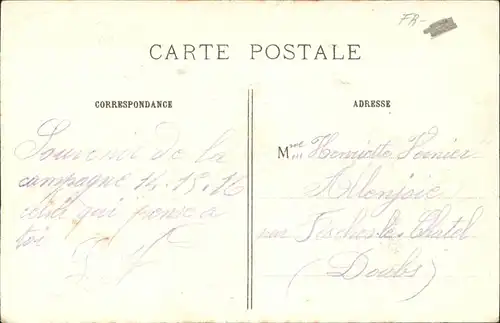 FR-
CARTE POSTALE
CORRESPONDANCE
Souvenir de la
campagne 14.15.16
celui qui pense a
toi
ADRESSE
Mme Henriette
Allenjoie
Fesches le Chatel
(Doubs)